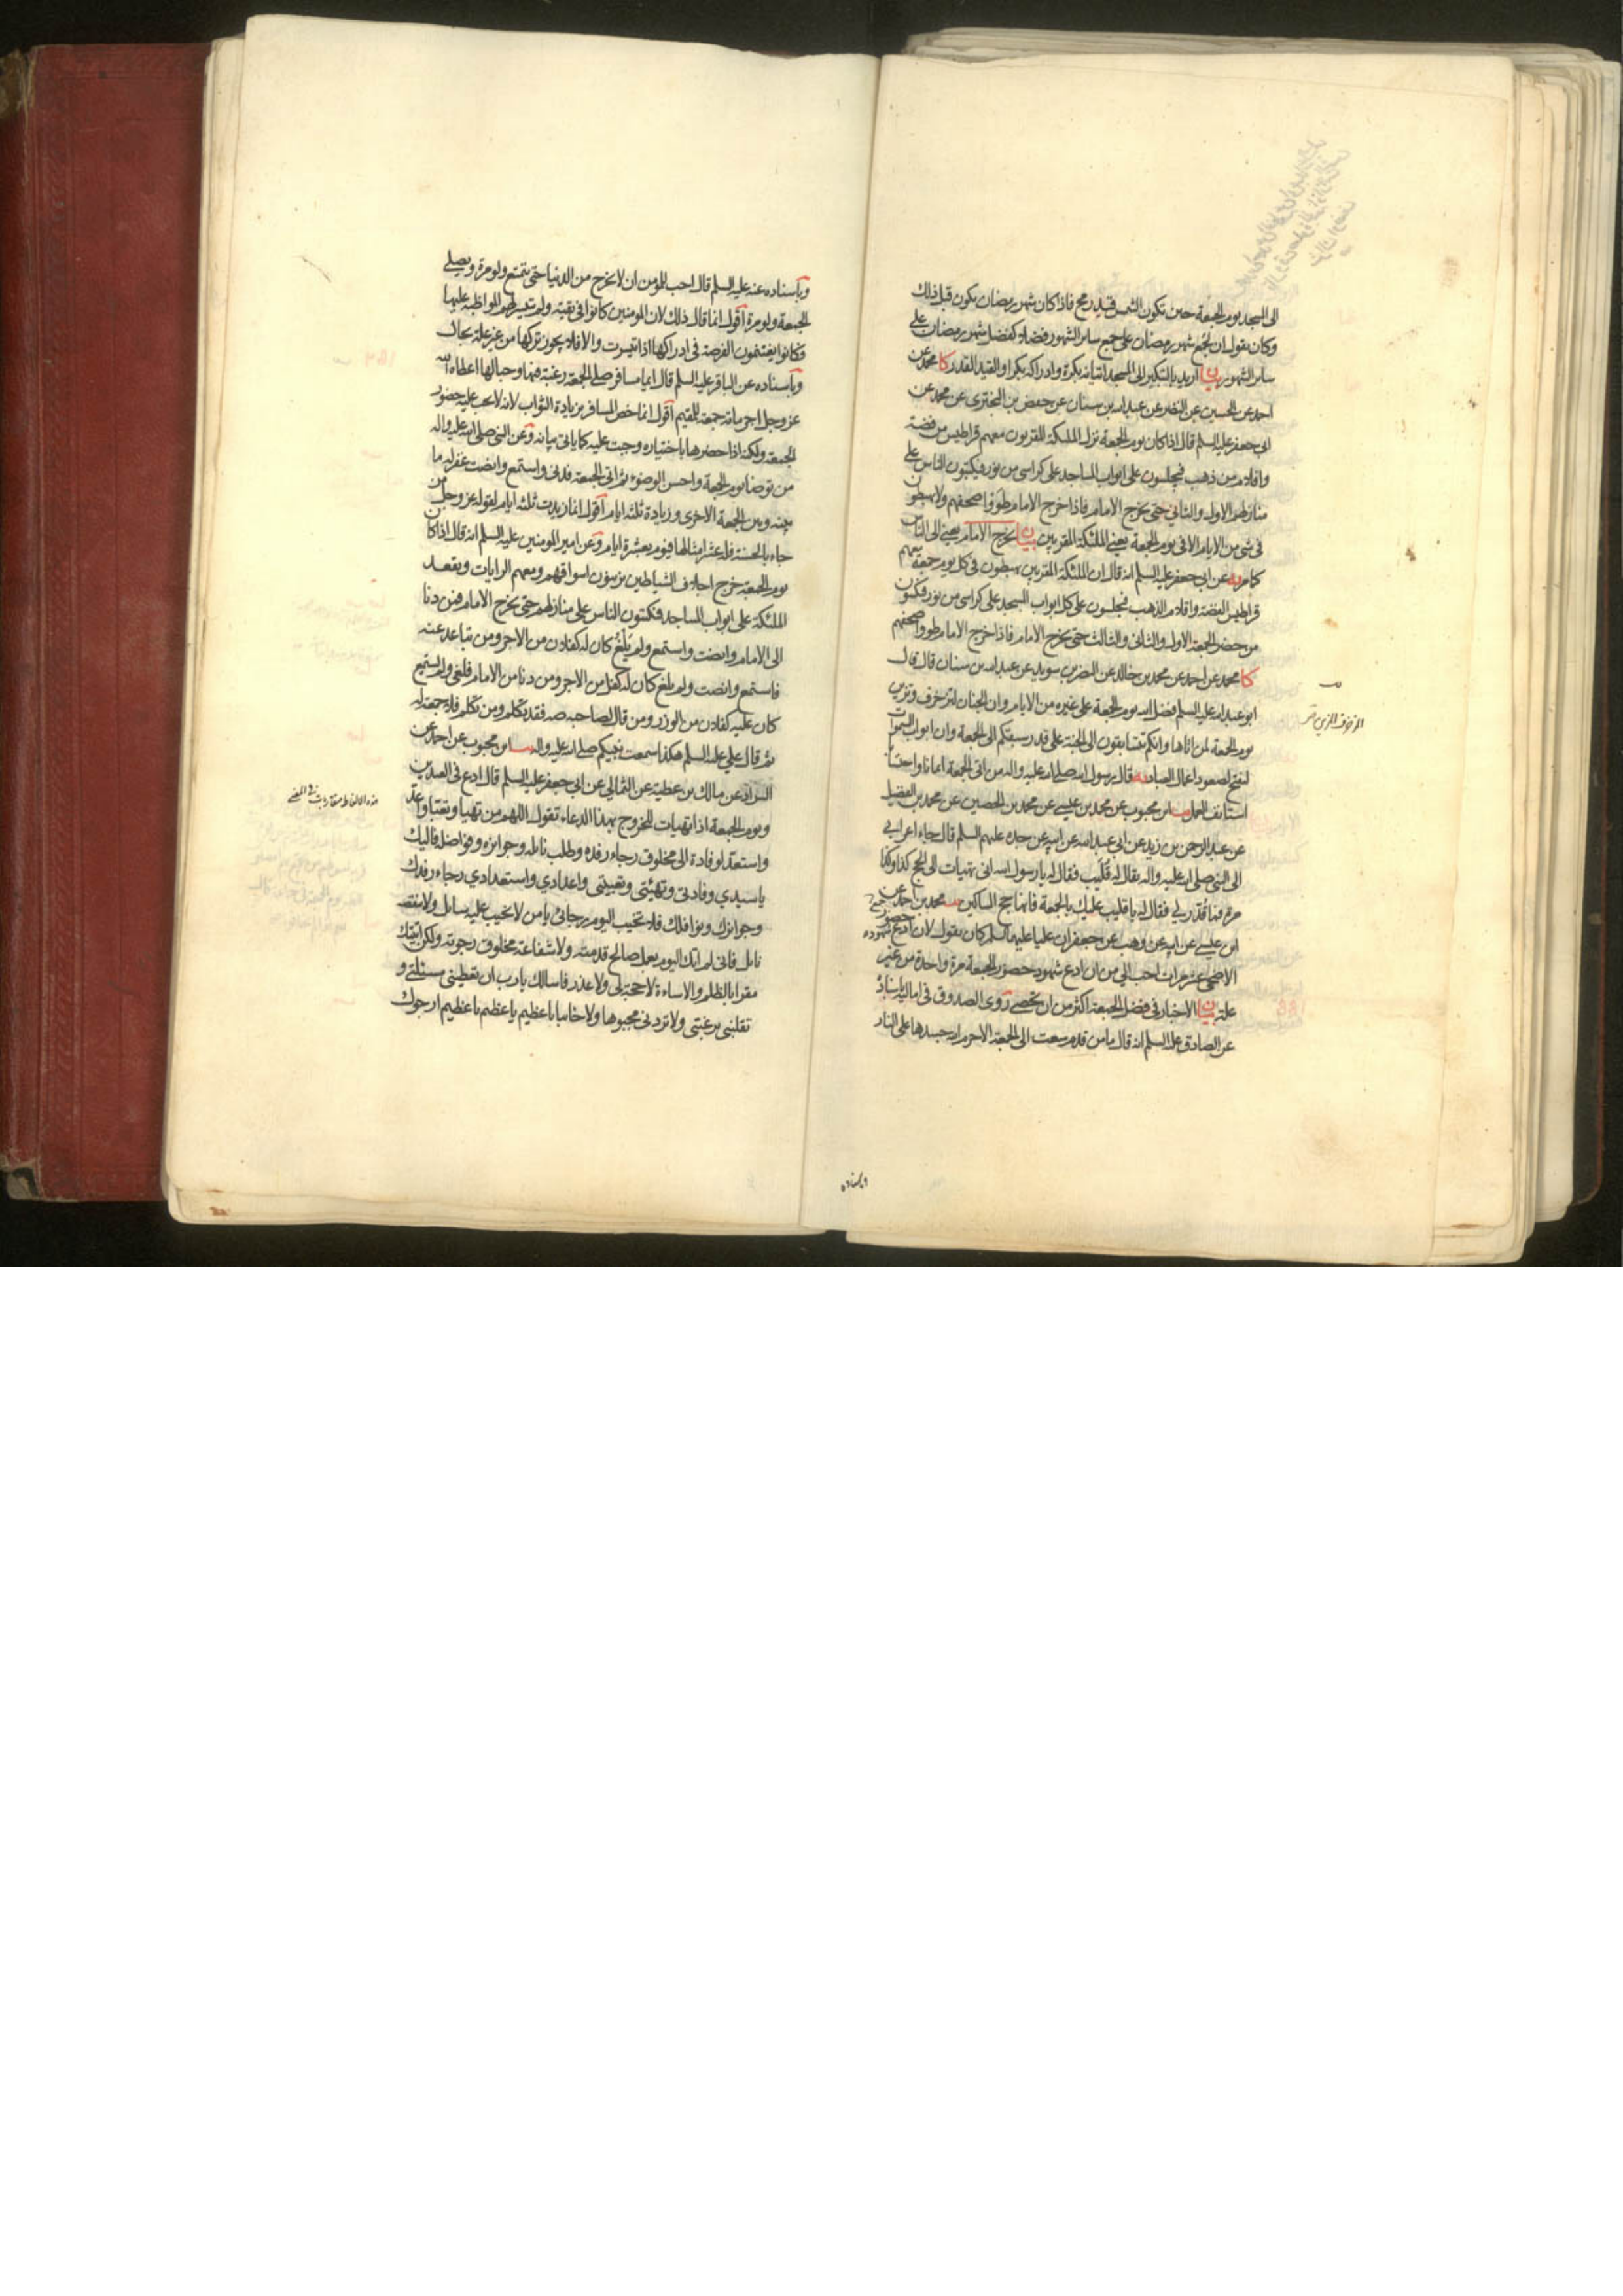 الى المسجد يوم الجمعة حين تكون الشمس قيد رمح فاذا كان شهر رمضان يكون قبل ذلك
وكان يقول ان لجمع شهر رمضان على جمع ساير الشهور فضلا كفضل شهر رمضان على
ساير الشهور بيان اريد بالتبكير الى المسجد اتيانه بكرة وادراكه بكرا والقيد القدر كا محمد عن
احمد عن الحسين عن النضر عن عبد الله بن سنان عن حفص بن البختري عن محمد عن
ابي جعفر عليه السلم قال اذا كان يوم الجمعة نزل الملئكة المقربون معهم قراطيس من فضة
واقلام من ذهب فيجلسون على ابواب المساجد على كراسى من نور فيكتبون الناس على
منازلهم الاول والثاني حتى يخرج الامام فاذا خرج الامام طووا صحفهم ولا يهبطون
فى شى من الايام الا فى يوم الجمعة يعنى الملئكة المقربين بيان يخرج الامام يعنى الى الناس
كا مر يه عن ابي جعفر عليه السلم انه قال ان الملئكة المقربين يهبطون فى كل يوم جمعة معهم
قراطيس الفضة واقلام الذهب فيجلسون على كل ابواب المسجد على كراسى من نور فيكتبون
من حضر الجمعة الاول والثاني والثالث حتى يخرج الامام فاذا خرج الامام طووا صحفهم
كا محمد عن احمد عن محمد بن خالد عن النضر بن سويد عن عبد الله بن سنان قال قال
ابو عبد الله عليه السلم فضل الله يوم الجمعة على غيره من الايام وان الجنان لتزخرف وتزين
يوم الجمعة لمن اتاها وانكم تتسابقون الى الجنة على قدر سبقكم الى الجمعة وان ابواب السموات
لتفتح لصعود اعمال العباد يه قال رسول الله صلى الله عليه واله من اتى الجمعة ايمانا واحتسابا
استانف العمل يب ابن محبوب عن محمد بن عيسى عن محمد بن الحصين عن محمد بن الفضيل
عن عبد الرحمن بن زيد عن ابي عبد الله عن ابيه عن جده عليهم السلم قال جاء اعرابي
الى النبي صلى الله عليه واله يقال له قليب فقال له يا رسول الله انى تهيات الى الحج كذا وكذا
مرة فما قدر لي فقال له يا قليب عليك بالجمعة فانها حج المساكين يب محمد بن احمد عن
ابن عيسى عن ابيه عن وهب عن جعفر ان عليا عليهما السلم كان يقول لان ادع شهود حضور
الاضحى عشر مرات احب الي من ان ادع شهود حضور الجمعة مرة واحدة من غير
علة بيان الاخبار فى فضل الجمعة اكثر من ان تحصى روى الصدوق فى اماليه باسناده
عن الصادق عليه السلم انه قال ما من قدم سعت الى الجمعة الا حرم الله جسدها على النار
الزخرف الزين
وباسناده
وباسناده عنه عليه السلم قال احب للمومن ان لا يخرج من الدنيا حتى يتمتع ولو مرة ويصلى
الجمعة ولو مرة اقول انما قال ذلك لان المومنين كانوا فى تقية ولم تتيسر لهم المواظبة عليها
وكانوا يغتنمون الفرصة فى ادراكها اذا تيسرت والا فلا يجوز تركها من غير علة بحال
وباسناده عن الباقر عليه السلم قال ايما مسافر صلى الجمعة رغبة فيها وحبا لها اعطاه الله
عز وجل اجر ماىة جمعة للمقيم اقول انما خص المسافر بزيادة الثواب لانه لا يجب عليه حضور
الجمعة ولكنه اذا حضرها باختياره وجبت عليه كما ياتى بيانه وعن النبى صلى الله عليه واله
من توضا يوم الجمعة واحسن الوضوء ثم اتى الجمعة فدنى واستمع وانصت غفر له ما
بينه وبين الجمعة الاخرى وزيادة ثلثة ايام اقول انما زيدت ثلثة ايام لقوله عز وجل من
جاء بالحسنة فله عشر امثالها فيوم بعشرة ايام وعن امير المومنين عليه السلم انه قال اذا كان
يوم الجمعة خرج احلاف الشياطين يزينون اسواقهم ومعهم الرايات وتقعد
الملئكة على ابواب المساجد فيكتبون الناس على منازلهم حتى يخرج الامام فمن دنا
الى الامام وانصت واستمع ولم يلغ كان له كفلان من الاجر ومن تباعد عنه
فاستمع وانصت ولم يلغ كان له كفل من الاجر ومن دنا من الامام فلغى ولم يستمع
كان عليه كفلان من الوزر ومن قال لصاحبه صه فقد تكلم ومن تكلم فلا جمعة له
ثم قال علي عليه السلم هكذا سمعت نبيكم صلى الله عليه واله يب ابن محبوب عن احمد عن
السراد عن مالك بن عطية عن الثمالي عن ابي جعفر عليه السلم قال ادع فى العيدين
ويوم الجمعة اذا تهيات للخروج بهذا الدعاء تقول اللهم من تهيا وتعبا واعد
واستعد لوفادة الى مخلوق رجاء رفده وطلب نايله وجوايزه وفواضله فاليك
يا سيدي وفادتي وتهيئتي وتعبيتى واعدادي واستعدادي رجاء رفدك
وجوايزك ونوافلك فلا تخيب اليوم رجائى يا من لا يخيب عليه سايل ولا ينقصه
نايل فانى لم اتك اليوم بعمل صالح قدمته ولا شفاعة مخلوق رجوته ولكن اتيتك
مقرا بالظلم والاساءة لا حجة لى ولا عذر فاسالك يا رب ان تعطينى مسئلتى و
تقلبنى برغبتى ولا تردنى مجبوها ولا خايبا يا عظيم يا عظيم يا عظيم ارجوك
هذه الالفاظ متقاربات فى المعنى